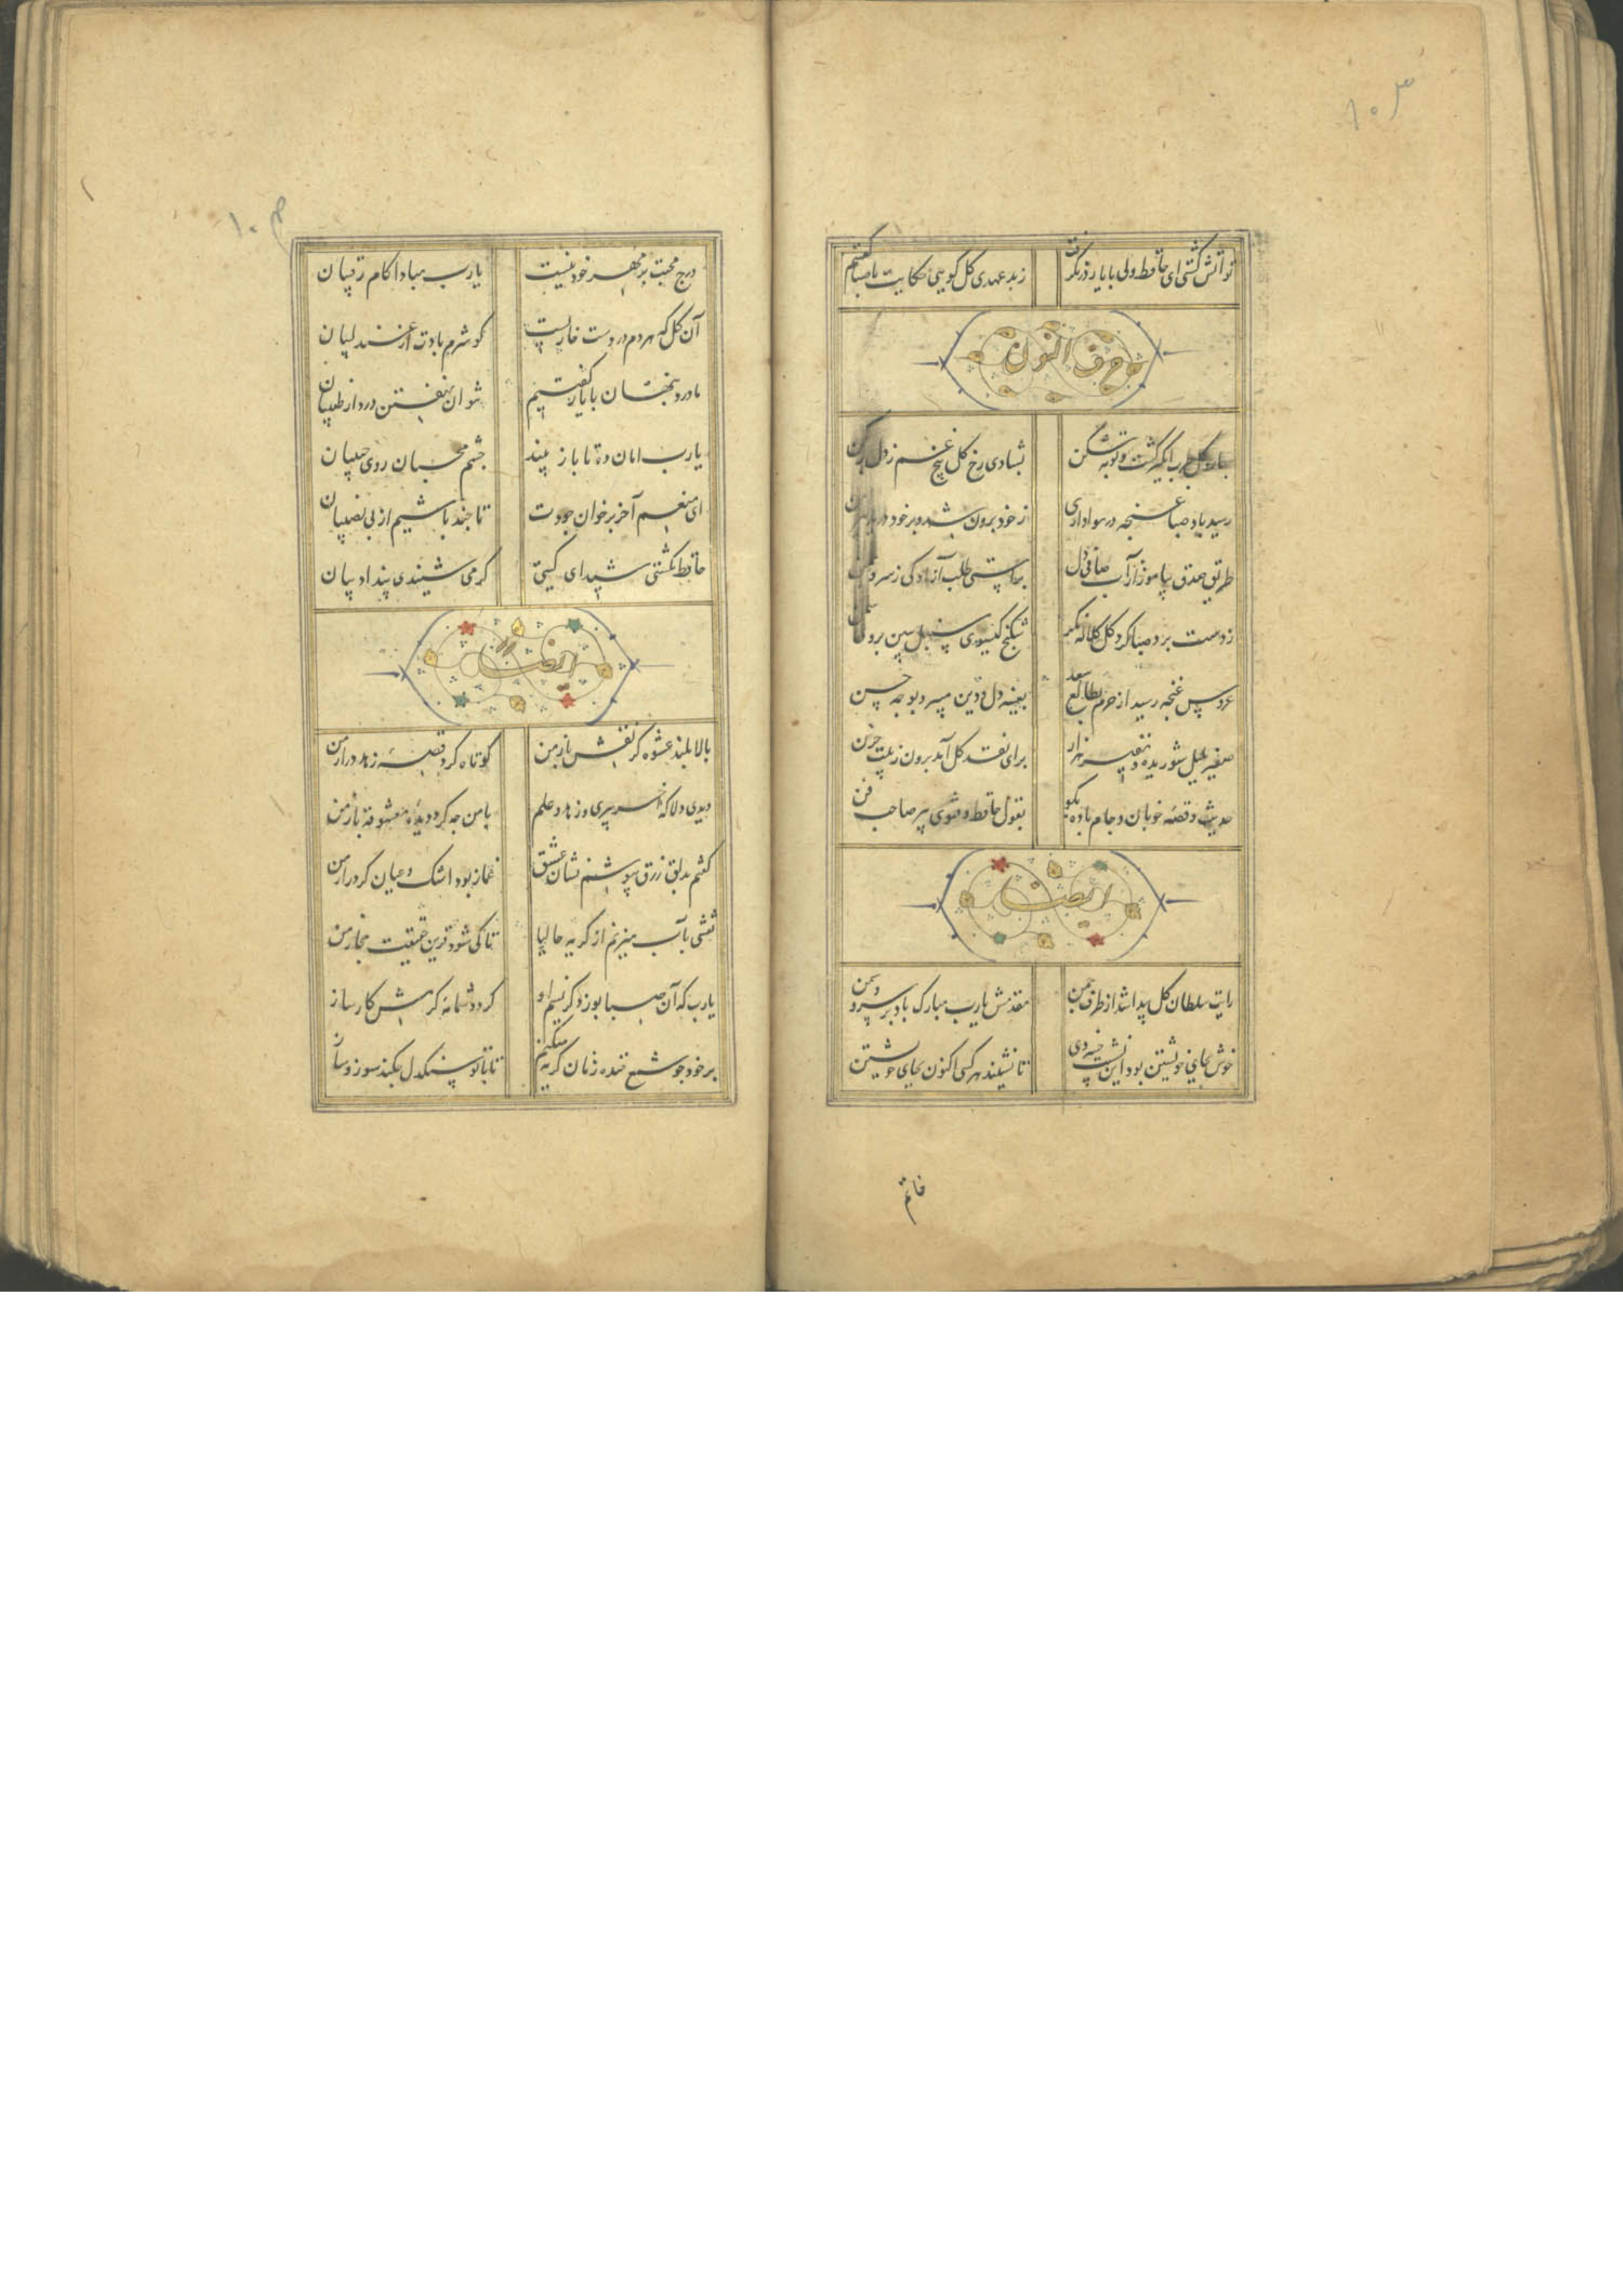 تو آتش گشتی ای حافظ ولی با یار درنگرفت
ز بدعهدی گل گویی حکایت با صبا گفتم
حرف النون
بهار گل طرب انگیز گشت و توبه شکن
بشادی رخ گل بیخ غم ز دل برکن
رسید باد صبا غنچه در هواداری
ز خود برون شد و بر خود درید پیرهن
طریق صدق بیاموز از آب صافی دل
براستی طلب آزادگی ز سرو چمن
ز دست برد صبا گرد گل کلاله نگر
شکنج گیسوی سنبل ببین بروی سمن
عروس غنچه رسید از حرم بطالع سعد
بعینه دل و دین میبرد بوجه حسن
صفیر بلبل شوریده و نفیر هزار
برای نقد گل آمد برون ز بیت حزن
حدیث و قصه خوبان و جام باده بگو
بقول حافظ و فتوی پیر صاحب فن
ایضا
رایت سلطان گل پیدا شد از طرف چمن
مقدمش یا رب مبارک باد بر سرو و سمن
خوش بجای خویشتن بود این نشست خسروی
تا نشیند هر کسی اکنون بجای خویشتن
خاتم
درج محبت بر مهر خود نیست
یا رب مبادا کام رقیبان
آن گل که هر دم در دست خاریست
گو شرم بادت از عندلیبان
ما درد پنهان با یار گفتیم
نتوان نهفتن درد از طبیبان
یا رب امان ده تا باز بیند
چشم محبان روی حبیبان
ای منعم آخر بر خوان جودت
تا چند باشیم از بی نصیبان
حافظ نگشتی شیدای گیتی
گر می شنیدی پند ادیبان
ایضا له
بالابلند عشوه گر نقش باز من
کوتاه کرد قصه زهد دراز من
دیدی دلا که آخر پیری و زهد و علم
با من چه کرد دیده معشوقه باز من
گفتم بدلق زرق بپوشم نشان عشق
غماز بود اشک و عیان کرد راز من
نقشی بآب میزنم از گریه حالیا
تا کی شود قرین حقیقت مجاز من
یا رب که آن صبا بوزد کز نسیم او
گردد شمامه کرمش کارساز
بر خود چو شمع خنده زنان گریه میکنم
تا با تو سنگدل بکند سوز و ساز